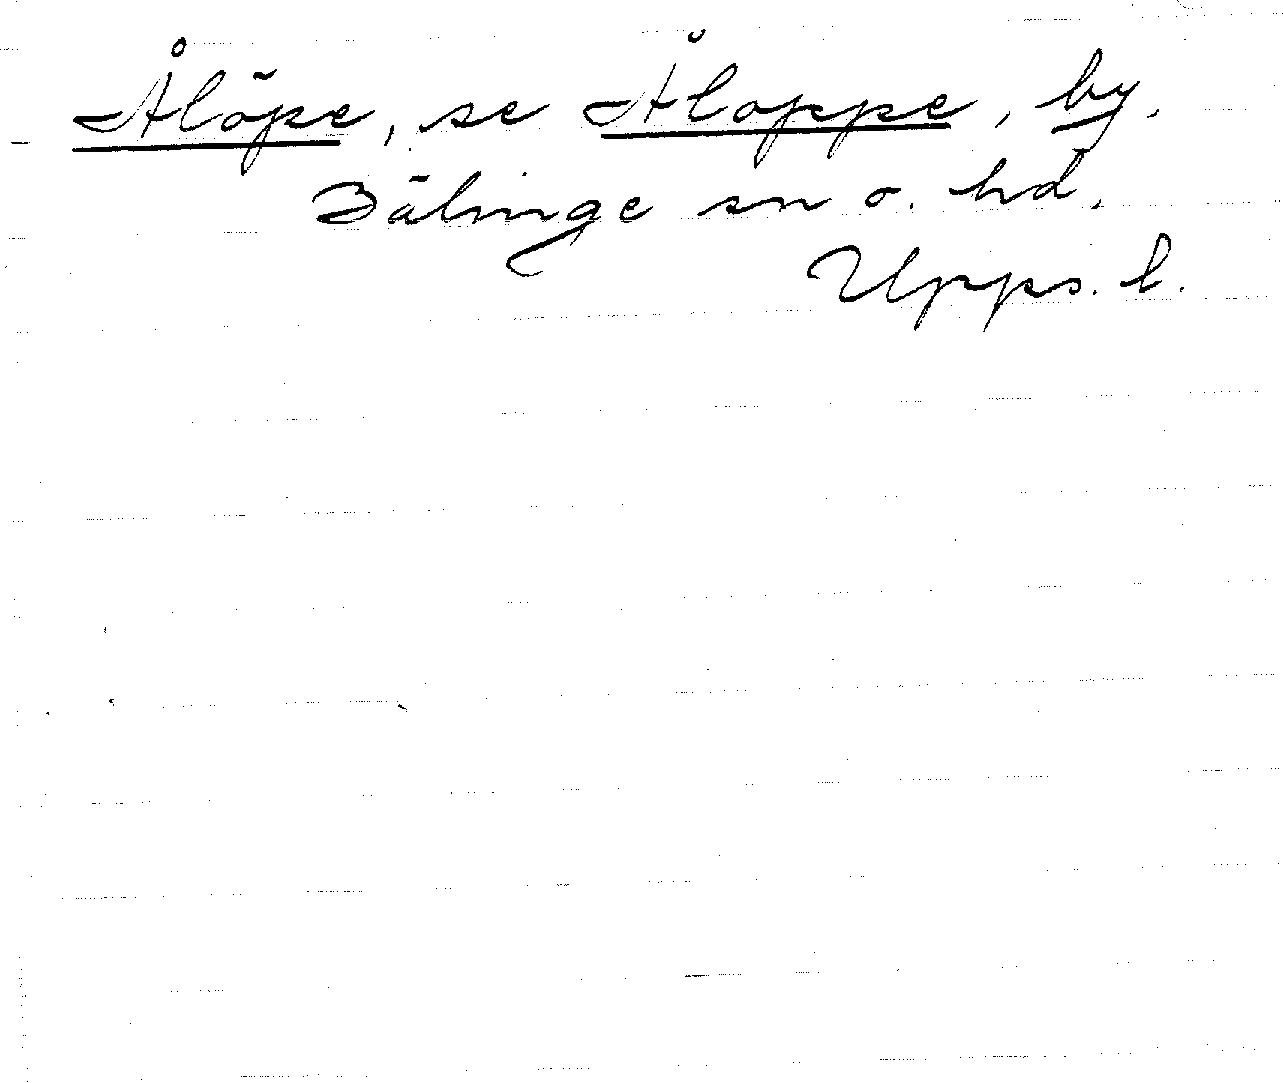 Ålöpe, se Åloppe, by.
Bälinge sn o. hd.
Upps. l.